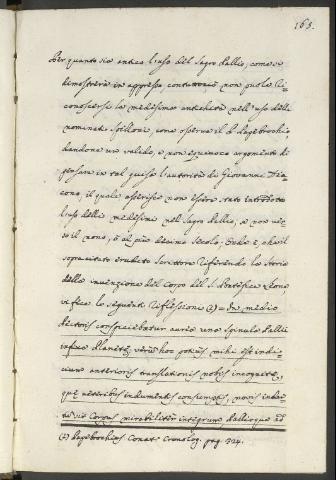 163.
Per quanto sia antico l'uso del Sagro Pallio, come si
dimostrerà in appresso, contuttociò non puole ri-
conoscersi la medesima antichità nell'uso delle
nominate spille, come osserva il P. Papebrochio,
dandone un valido, e non equivoco argomento di
pensare in tal guisa l'autorità di Giovanni Dia-
cono, il quale asserisce non essere stato introdotto
l'uso delle medesime nel Sagro Pallio, se non ver-
so il nono, o al più decimo secolo; Onde è che il
sopracitato erudito Scrittore riferendo la storia
della invenzione del Corpo del S. Pontefice Leone,
vi fece la seguente riflessione (2) = In medio
pectoris conspiciebatur aurea una spinula Pallii
infixa Planetę, verum hoc potius mihi est indi-
cium anterioris translationis nobis incognitę,
quę veteribus indumentis consumptis, novis indu-
tum Corpus mirabiliter integrum Pallioque ad
(2) Papebrochius Conat. Cronolog. pag. 324.